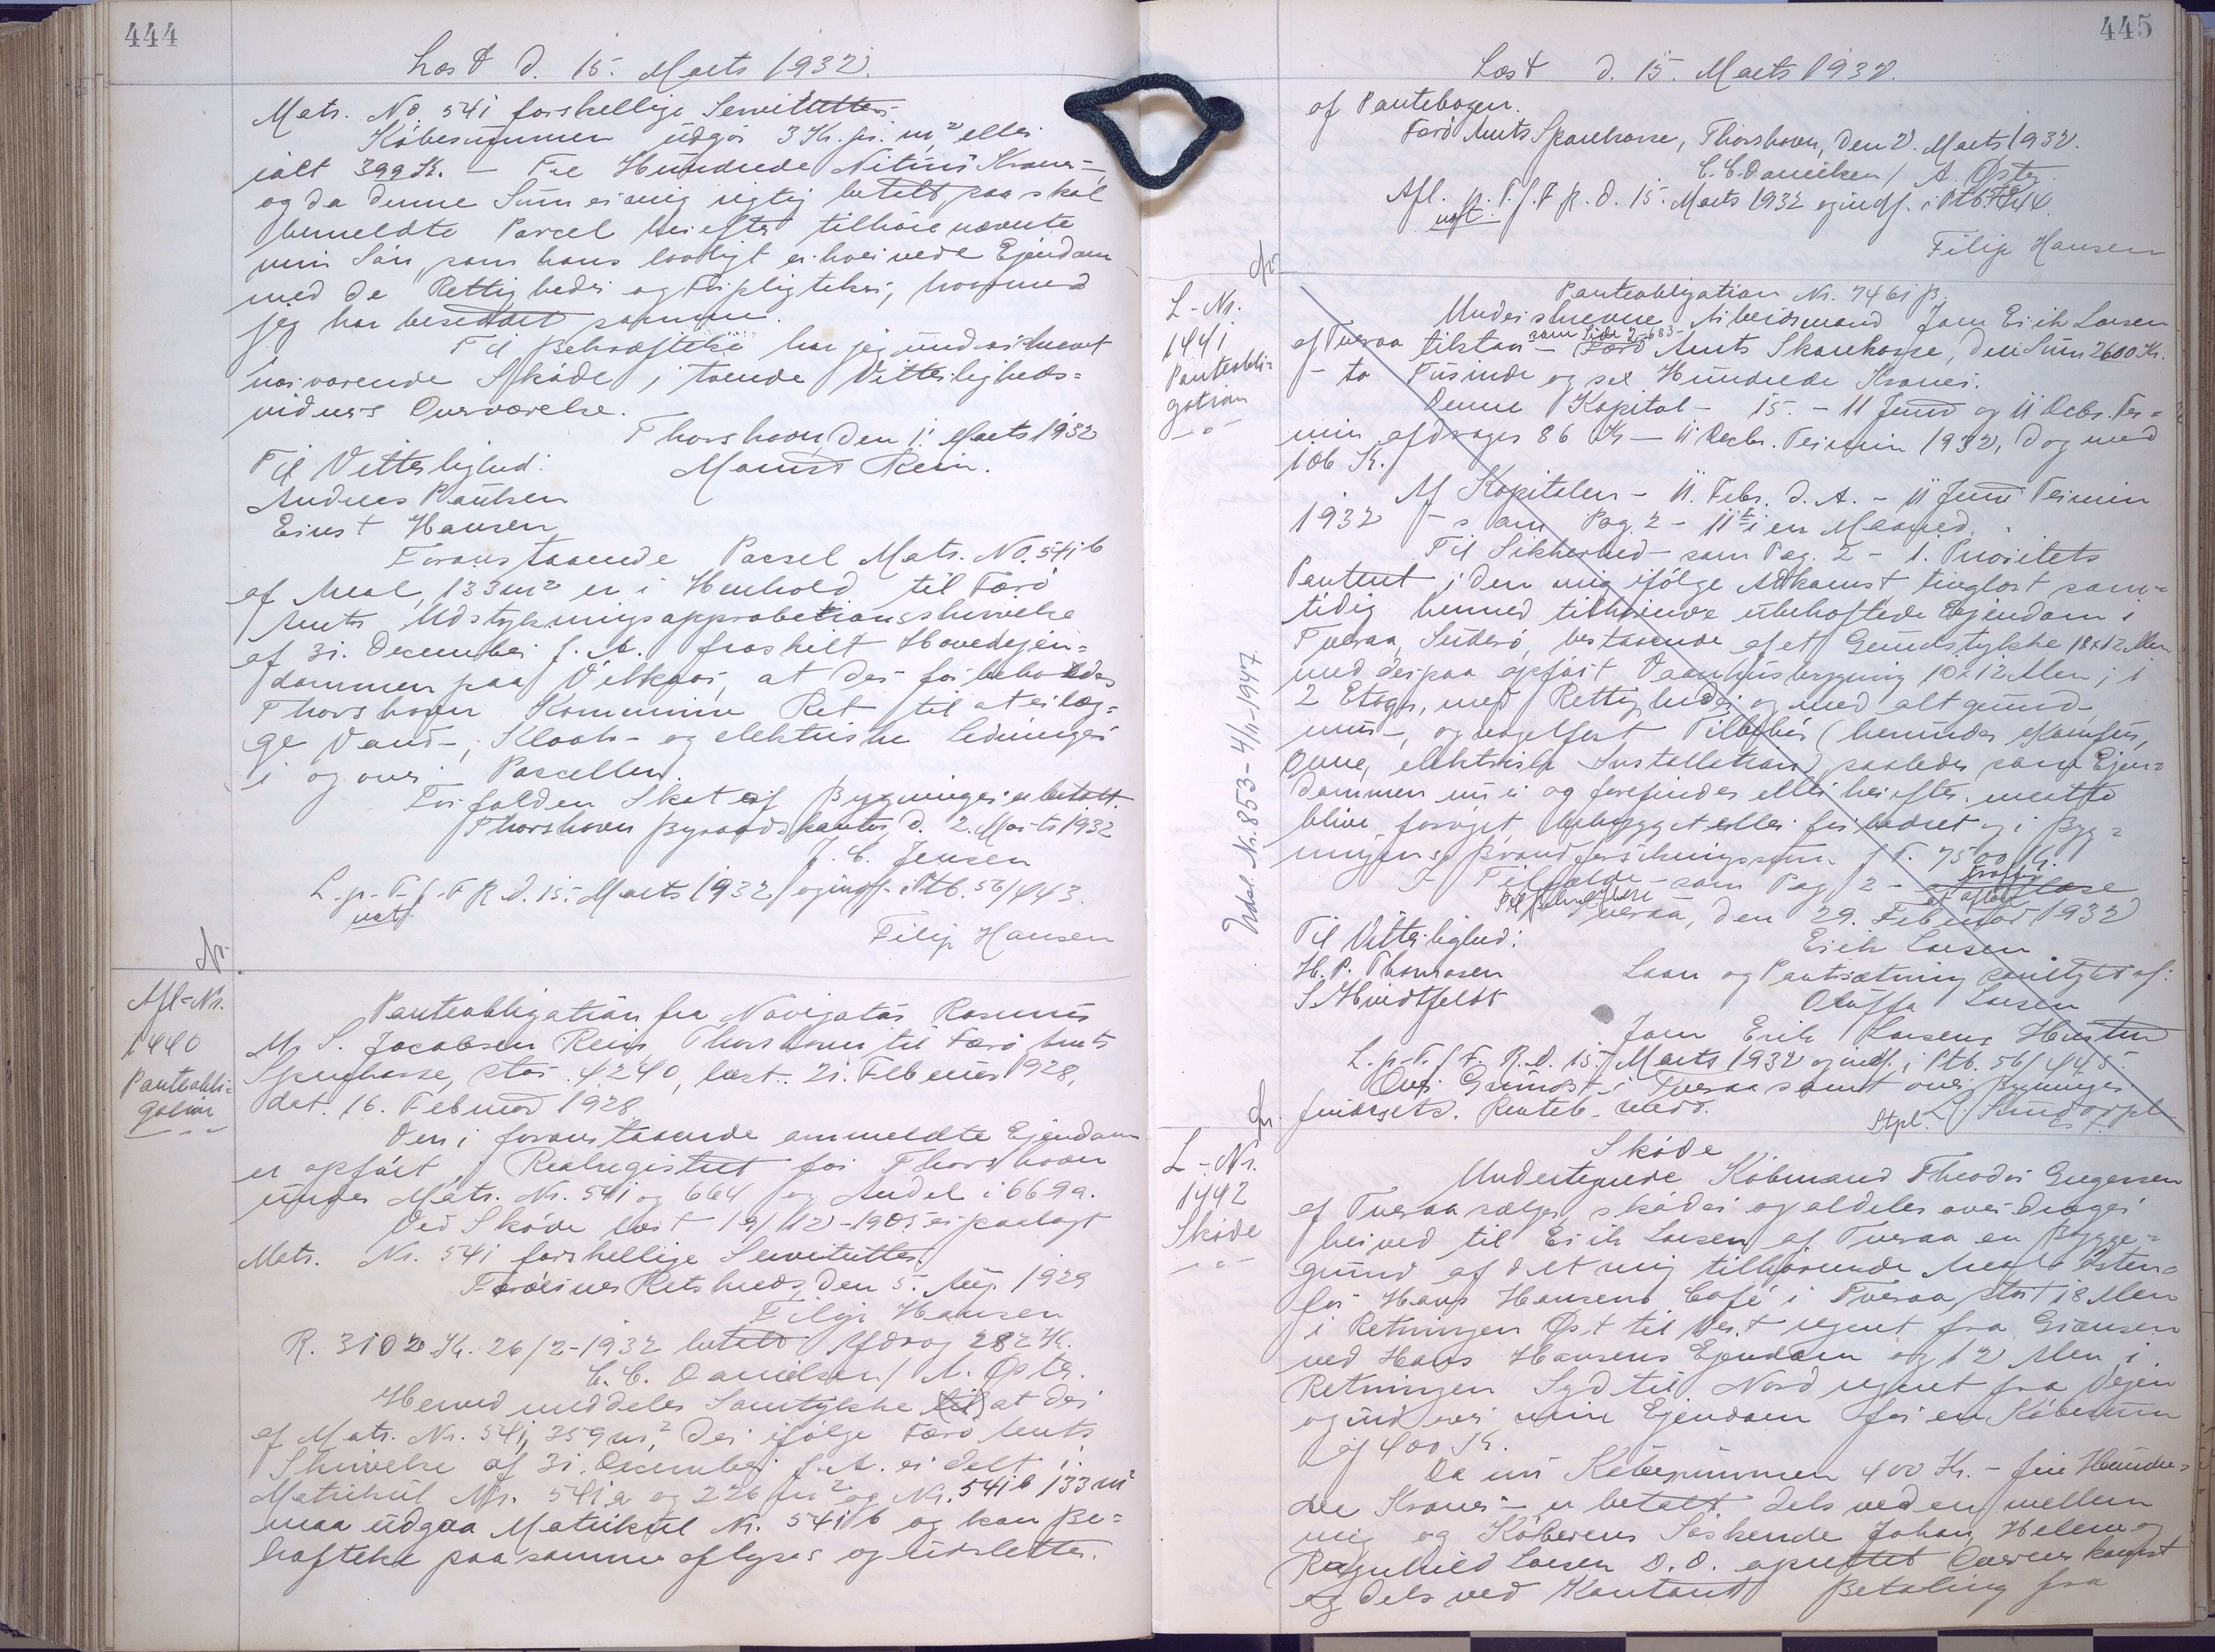 444
Læst d. 15. Marts 1932.
Matr. No. 541 forskellige Servitutter.
Købesummen udgør 3 Kr. pr. m² eller
ialt 399 Kr. - Tre Hundrede Nitini Kroner -
og da denne Sum er mig rigtig betalt, saa skal
bemeldte Parcel herefter tilhøre nævnte
min Søn, som hans lovligt erhvervede Ejendom
med de Rettigheder og Forpligtelser, hvormed
jeg har besiddet samme.
Til Bekræftelse har jeg underskrevet
nærværende Skøde i tvende Vitterligheds=
vidners Overværelse.
Thorshavn, den 1. Marts 1932
Til Vitterlighed: 
Rein.
Andreas Poulsen
Ernst Hansen
Foranstaaende Parcel Matr. No. 541b
af Areal 133 m² er i Henhold til Færø
Amts Udstykningsapprobationsskrivelse
af 31. December f. A. fraskilt Hovedejen=
dommen paa Vilkaar, at der forbeholdes
Thorshavn Kommune Ret til at erlæg=
ge Vand-, Kloak- og elektriske Ledninger
i og over Parcellen.
Forfalden Skat af Bygninger er betalt.
Thorshavn Byraadskontor, d. 2. Marts 1932
J. C. Jensen
L. p. T. f. F. R. d. 15. Marts 1932 og indf. i Ptb. 56/443.
Filip Hansen
Afl-Nr.
1440
Panteobli=
gation
Panteobligation fra Navigatør Rasmus
M. S. Jacobsen Rein, Thorshavn til Færø Amts
Sparekasse, stor 4240, læst 21. Februar 1928,
dat. 16. Februar 1928
Den i foranstaaende ommeldte Ejendom
er opført i Realregistret for Thorshavn
under Matr. Nr. 541 og 664 og Andel i 669a.
Ved Skøde læst 19/12-1905 er paalagt
Matr. Nr. 541 forskellige Servitutter.
Færøernes Retskreds, den 5. Aug. 1929
Filip Hansen
R. 3102 Kr. 26/2-1932 betalt Afdrag 282 Kr.
C. C. Danielsen / A. Øster.
Herved meddeles Samtykke (til) at der
af Matr. Nr. 541, 359 m², der ifølge Færø Amts
Skrivelse af 31. December f. A. er delt i
Matrikul Nr. 541a og 226 m² og Nr. 541b 133 m²
maa udgaa Matrikul Nr. 541b og kan Be=
hæftelse paa samme aflyses og udslettes.
445
Læst d. 15. Marts 1932.
af Pantebogen.
Færø Amts Sparekasse, Thorshavn, den 2. Marts 1932.
C. C. Danielsen / A. Øster
Afl. p. T. f. F. R. d. 15. Marts 1932 og indf. i Ptb. 56/444.
Filip Hansen
L-Nr.
1441
Panteobli=
gation
Panteobligation Nr. 7461 B.
Underskrevne Arbeidsmand Joen Erik Larsen
af Tveraa tilstaar - som Side 2-683 - Færø Amts Sparekasse, den Sum 2600 Kr.
- to Tusinde og sex Hundrede Kroner.
Denne Kapital - 15. - 11 Juni og 11 Decbr. Ter=
min afdrages 86 Kr - 11 Decbr. Termin 1932, dog med
106 Kr.
Af Kapitalen - 11. Febr. d. A. - 11 Juni Termin
1932 - som Pag. 2 - 11te i en Maaned.
Til Sikkerhed - som Pag. 2 - 1. Prioritets
Panteret i den mig ifølge Adkomst, tinglæst sam=
tidig hermed tilhørende ubehæftede Ejendom i
Tveraa, Suderø, bestaaende af et Grundstykke 18x12 Alen
med derpaa opført Vaaningsbygning 10x12 Alen, i
2 Etager, med Rettigheder og med alt grund-
mur-, og nagelfast Tilbehør (herunder Komfur,
Ovne, elektriske Installation), saaledes som Ejen=
dommen nu er og forefindes eller herefter maatte
blive forøget, bebygget eller forbedret og i Byg=
ningens Brandforsikringssum f. T. 7500 Kr.
I Tilfælde - som Pag. 2 -
Til Bekræftelse
Tveraa, den 29. Februar 1932
Til Vitterlighed:
Erik Larsen
H. P. Thomasen
Laan og Pantsætning samtykt af:
S. Hvidtfeldt
Oluffa Larsen
Joen Erik Larsens Hustru
L. p. T. f. F. R. d. 15. Marts 1932 og indf. i Ptb. 56/445.
Over Grundst. i Tveraa samt over Bygninger
Udsl. Nr. 853 - 4/11-1947
L-Nr.
1442
Skøde
Skøde
Undertegnede Købmand Theodor Gregersen
af Tveraa sælger, skøder og aldeles overdrager
herved til Erik Larsen af Tveraa en Bygge=
grund af det mig tilhørende Areal Østen=
for Hans Hansens Café i Tveraa, stort 18 Alen
i Retningen Øst til Vest regnet fra Grænsen
ved Hans Hansens Ejendom og 12 Alen i
Retningen Syd til Nord regnet fra Vejen
og ind over min Ejendom for en Købesum
af 400 Kr.
Da nu Købesummen 400 Kr. - fire Hundre=
de Kroner - er betalt dels ved en mellem
mig og Køberens Søskende Johan, Helene og
Ragnhild Larsen D. D. oprettet Overenskomst
og dels ved Kontant Betaling fra